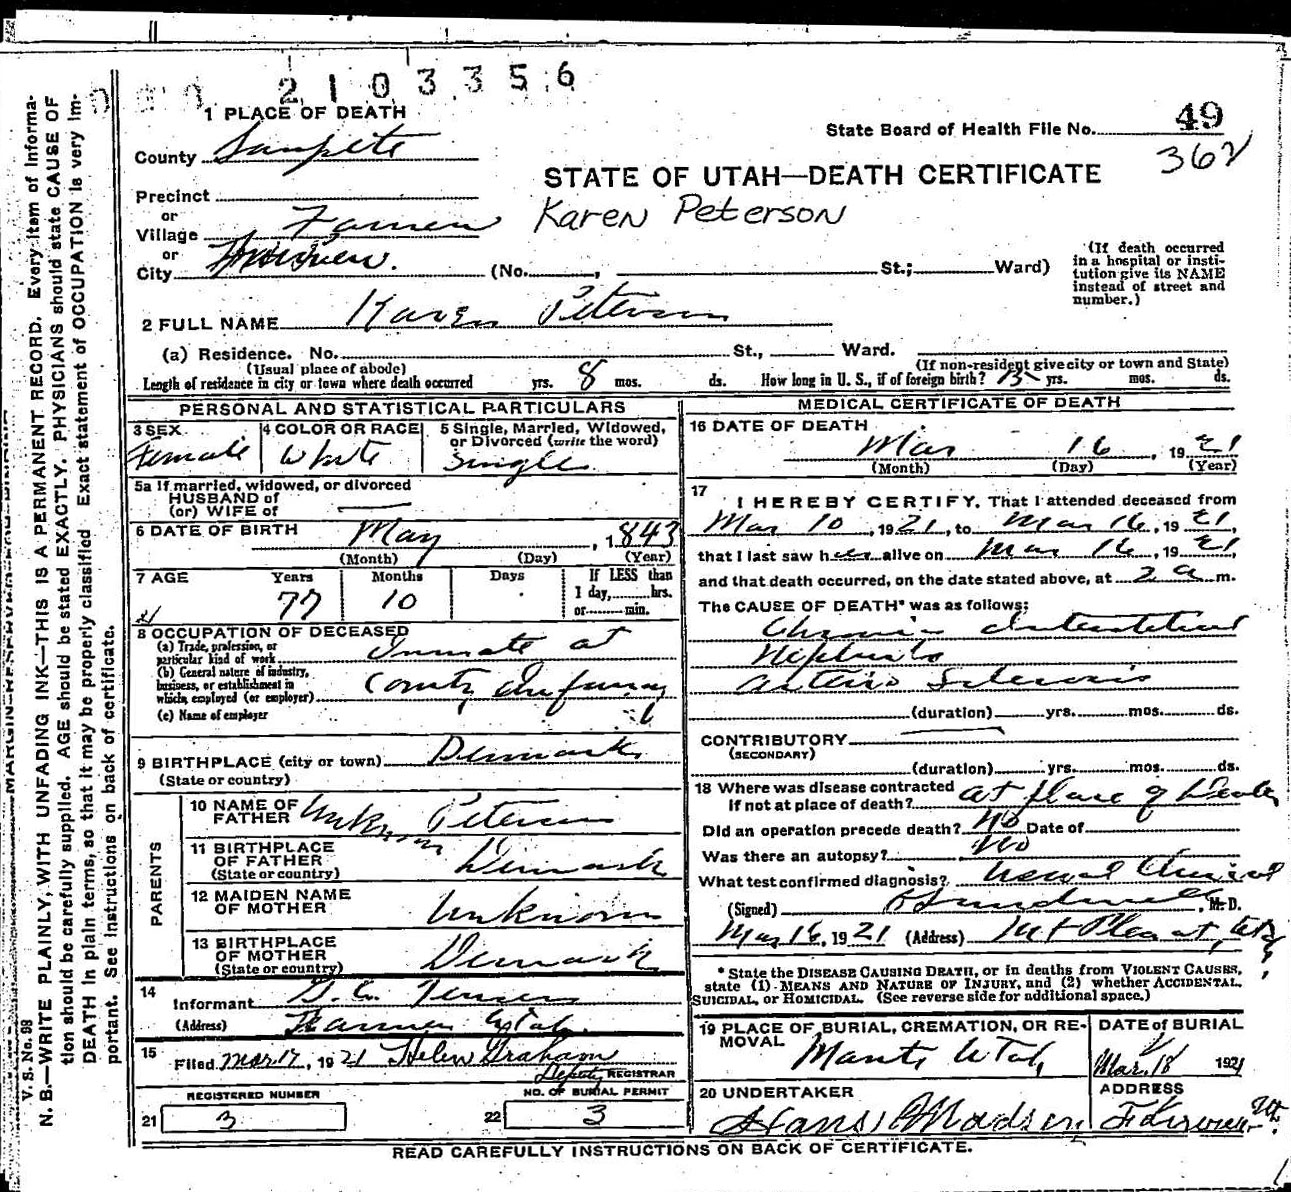 2 1 0 3 3 5 6
1 PLACE OF DEATH
State Board of Health File No. 49
362
County Sanpete
STATE OF UTAH—DEATH CERTIFICATE
Precinct
or
Karen Peterson
Village
or
City
(No. , St.; Ward)
(If death occurred
in a hospital or insti-
tution give its NAME
instead of street and
number.)
2 FULL NAME Karen Peterson
(a) Residence. No. St., Ward.
(Usual place of abode)
(If non-resident give city or town and State)
Length of residence in city or town where death occurred yrs. 8 mos. ds. How long in U. S., if of foreign birth? yrs. mos. ds.
PERSONAL AND STATISTICAL PARTICULARS
3 SEX
Female
4 COLOR OR RACE
White
5 Single, Married, Widowed,
or Divorced (write the word)
Single
5a If married, widowed, or divorced
HUSBAND of
(or) WIFE of
6 DATE OF BIRTH May , 1843
(Month) (Day) (Year)
7 AGE
Years Months Days
77 10
If LESS than
1 day, hrs.
or min.
8 OCCUPATION OF DECEASED
(a) Trade, profession, or
particular kind of work Inmate at
(b) General nature of industry,
business, or establishment in
which employed (or employer) County Infirmary
(c) Name of employer
9 BIRTHPLACE (city or town) Denmark
(State or country)
PARENTS
10 NAME OF
FATHER Unknown Peterson
11 BIRTHPLACE
OF FATHER
(State or country) Denmark
12 MAIDEN NAME
OF MOTHER Unknown
13 BIRTHPLACE
OF MOTHER
(State or country) Denmark
14
Informant Jensen
(Address) Utah.
15
Filed Mar. 17, 1921 Helen Graham
Deputy REGISTRAR
REGISTERED NUMBER
21 3
NO. OF BURIAL PERMIT
22 3
MEDICAL CERTIFICATE OF DEATH
16 DATE OF DEATH
Mar 16, 1921
(Month) (Day) (Year)
17
I HEREBY CERTIFY, That I attended deceased from
Mar 10, 1921, to Mar 16, 1921,
that I last saw her alive on Mar 16, 1921
and that death occurred, on the date stated above, at 2 a m.
The CAUSE OF DEATH* was as follows:
Chronic Interstitial
Nephritis
Arterio Sclerosis
(duration) yrs. mos. ds.
CONTRIBUTORY
(SECONDARY)
(duration) yrs. mos. ds.
18 Where was disease contracted
if not at place of death? at place of Death
Did an operation precede death? No Date of
Was there an autopsy? No
What test confirmed diagnosis? Usual Clinical
(Signed) , M. D.
Mar 16, 1921 (Address) Mt Pleasant, Utah
* State the DISEASE CAUSING DEATH, or in deaths from VIOLENT CAUSES,
state (1) MEANS AND NATURE OF INJURY, and (2) whether ACCIDENTAL,
SUICIDAL, or HOMICIDAL. (See reverse side for additional space.)
19 PLACE OF BURIAL, CREMATION, OR RE-
MOVAL Manti Utah
DATE of BURIAL
Mar. 18 1921
20 UNDERTAKER
Hans Madsen
ADDRESS
READ CAREFULLY INSTRUCTIONS ON BACK OF CERTIFICATE.
V. S. No. 98
MARGIN RESERVED FOR BINDING
N. B.—WRITE PLAINLY, WITH UNFADING INK—THIS IS A PERMANENT RECORD. Every item of informa-
tion should be carefully supplied. AGE should be stated EXACTLY. PHYSICIANS should state CAUSE OF
DEATH in plain terms, so that it may be properly classified. Exact statement of OCCUPATION is very im-
portant. See instructions on back of certificate.